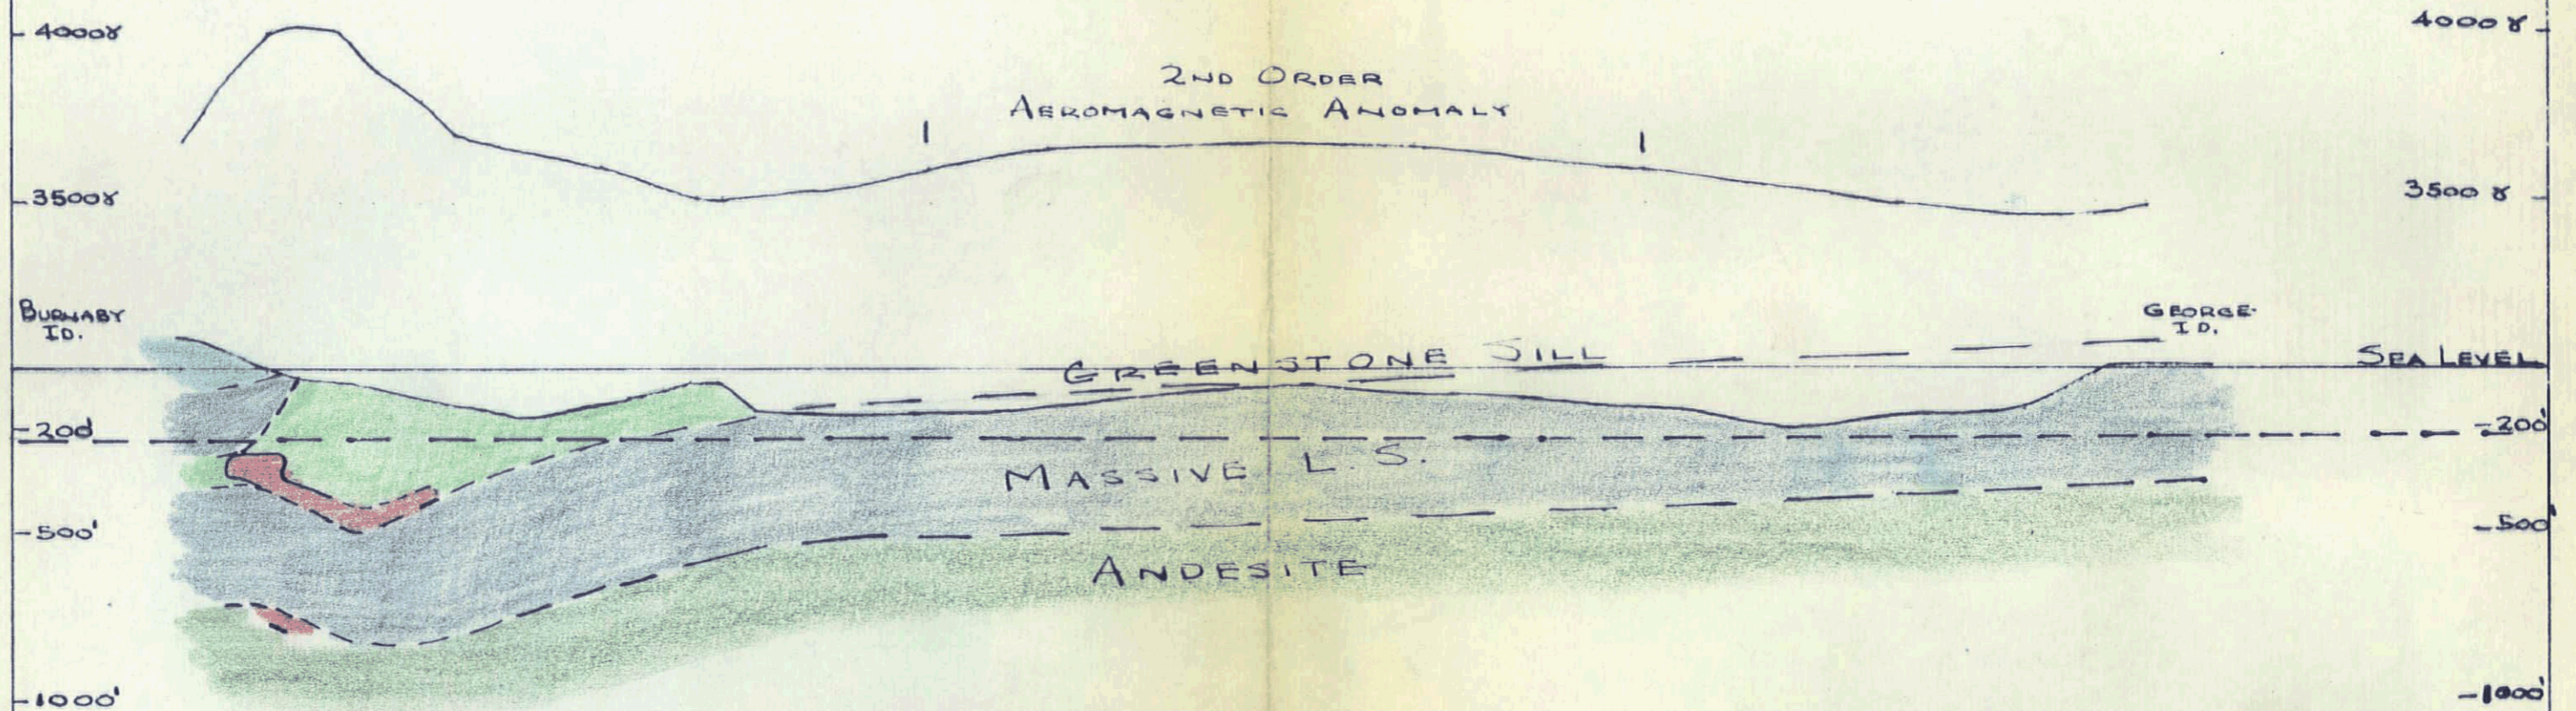 4000γ
4000 γ
2ND ORDER
AEROMAGNETIC ANOMALY
3500γ
3500 γ
BURNABY
ID.
GEORGE
ID.
GREENSTONE SILL
SEA LEVEL
-200'
-200'
MASSIVE L.S.
-500'
-500'
ANDESITE
-1000'
-1000'